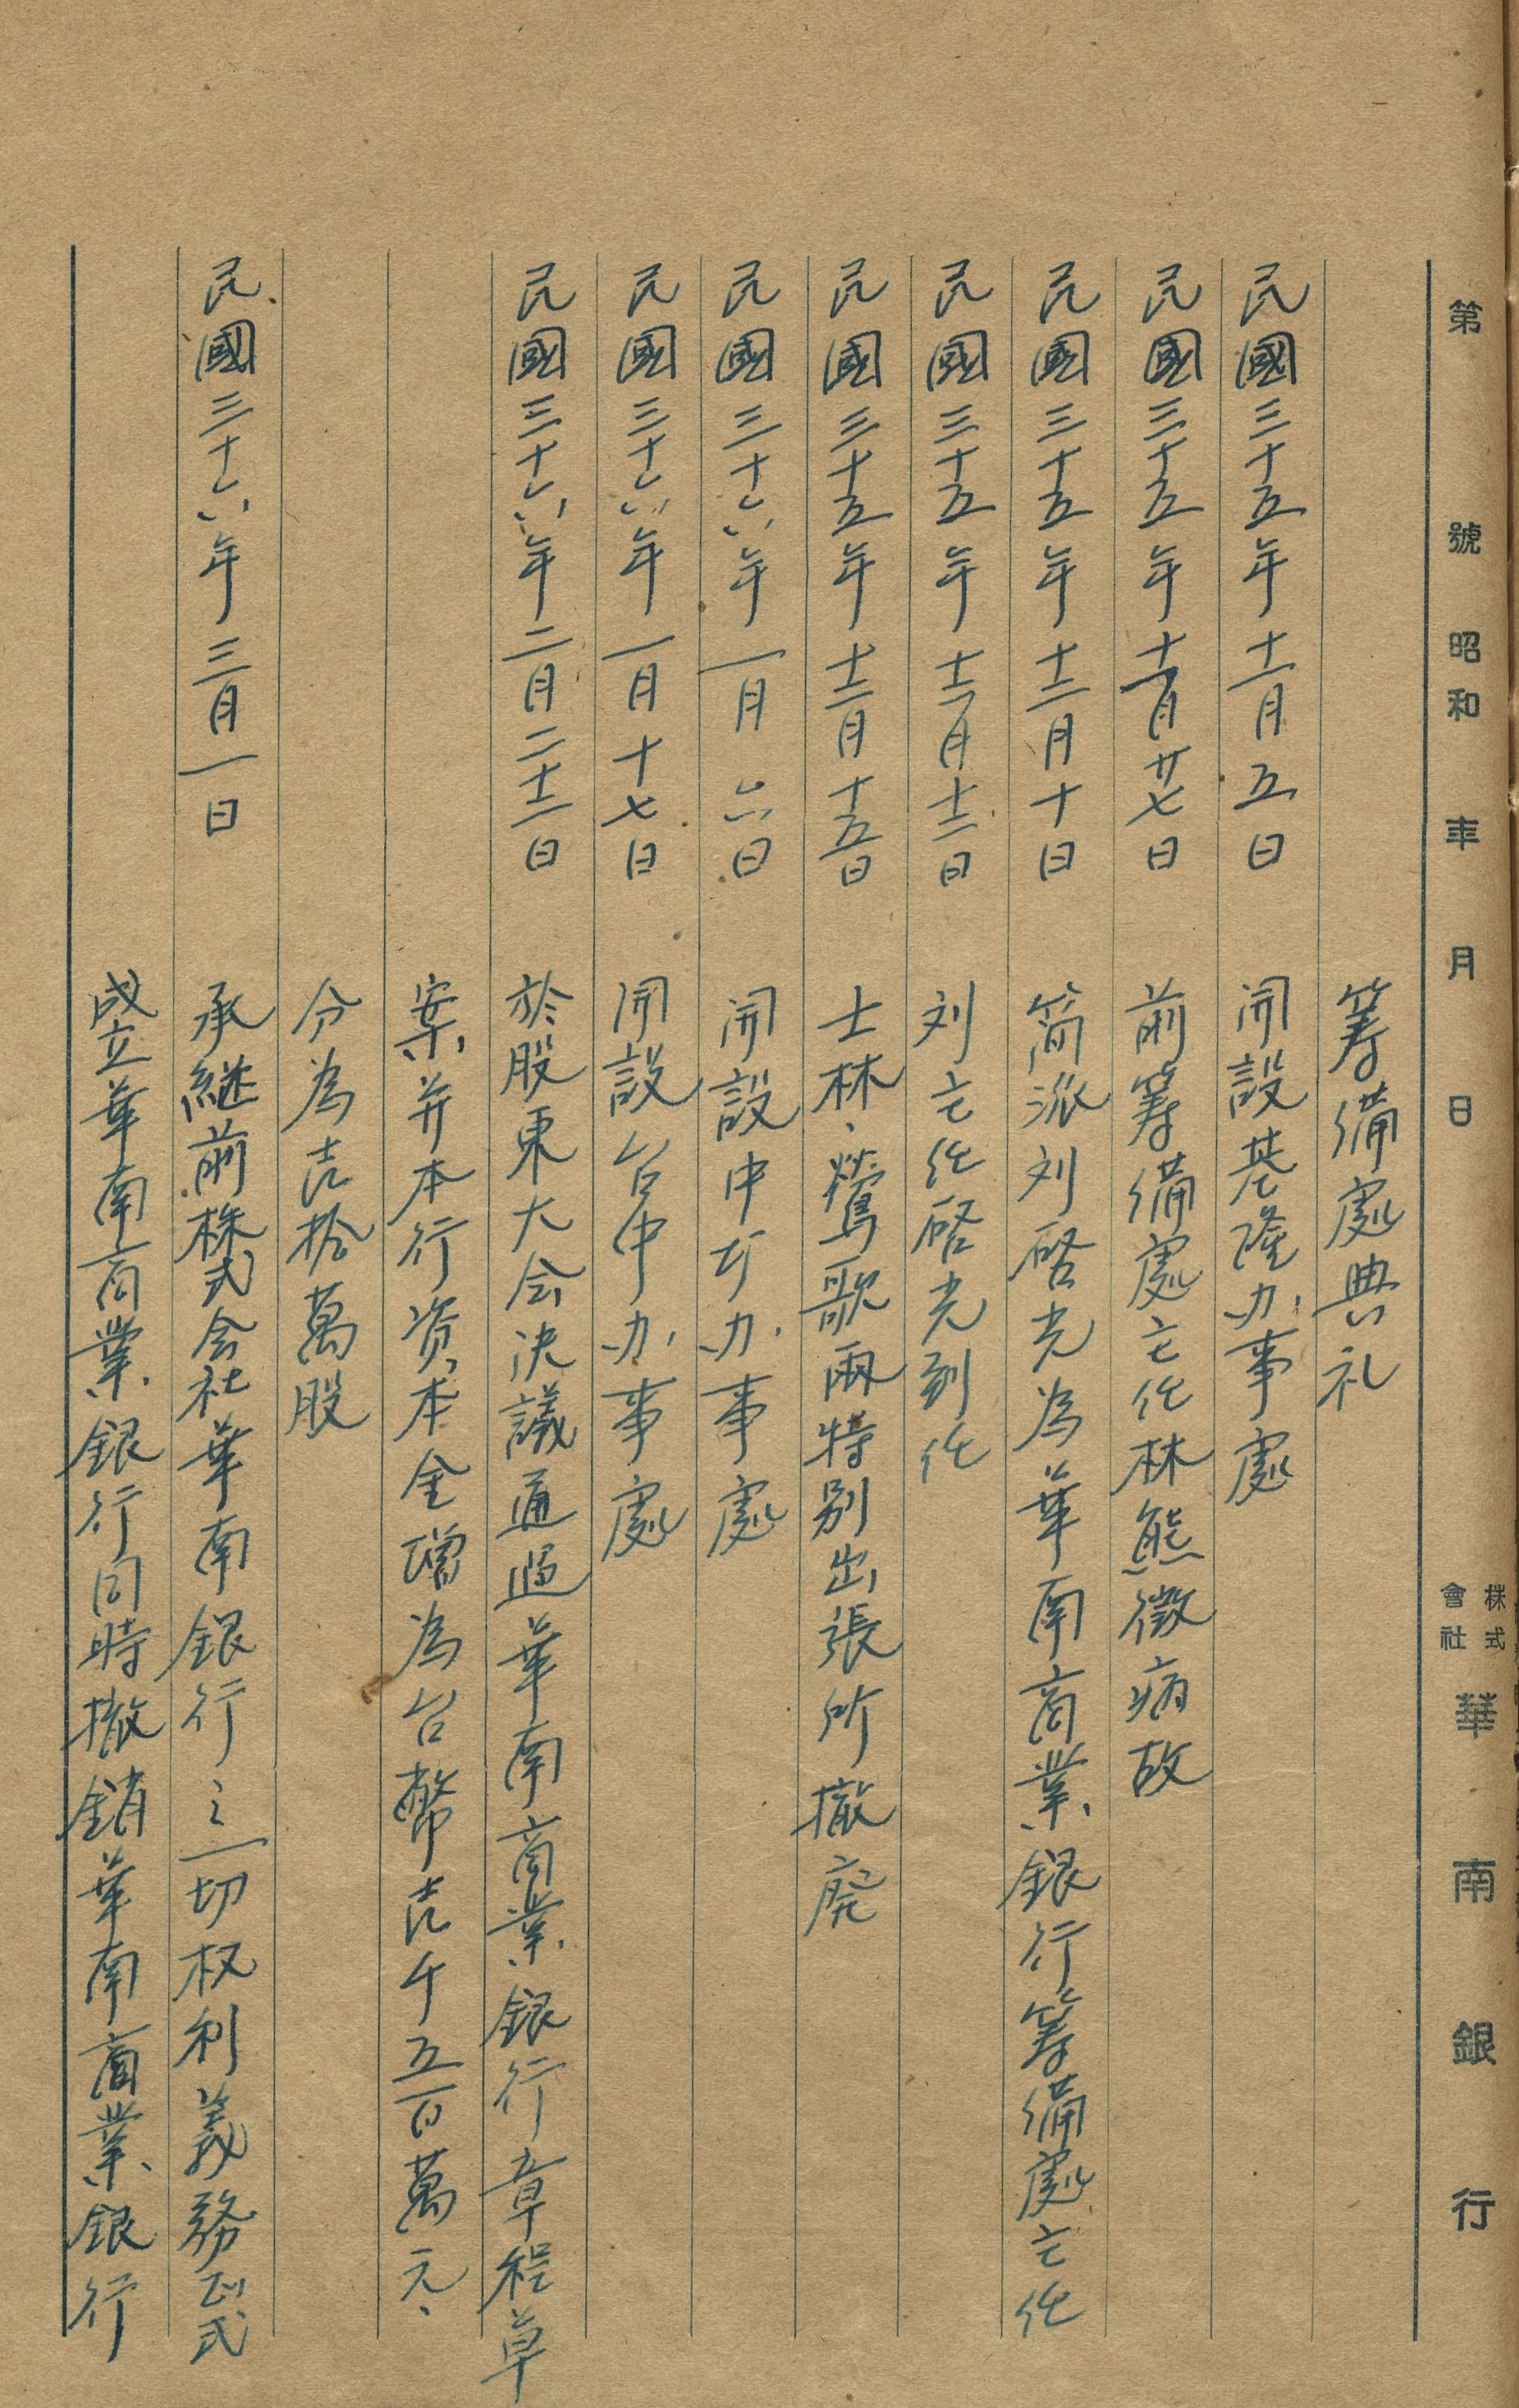 第 號 昭和 年 月 日 株式會社 華南銀行
籌備處典礼
民國三十五年十一月五日 開設基隆办事處
民國三十五年十一月廿七日 前籌備處主任林熊徵病故
民國三十五年十二月十日 简派刘啓光為華南商業銀行籌備處主任
民國三十五年十二月十二日 刘主任啓光到任
民國三十五年十二月十五日 士林、鶯歌兩特别出張所撤廃
民國三十六年一月六日 開設中圻办事處
民國三十六年一月十七日 開設台中办事處
民國三十六年二月二十二日 於股東大会决議通過華南商業銀行章程草
案并本行资本金增為台幣壱千五百萬元、
分為壱拾萬股
民國三十六年三月一日 承継前株式会社華南銀行之一切权利義務正式
成立華南商業銀行同時撤銷華南商業銀行